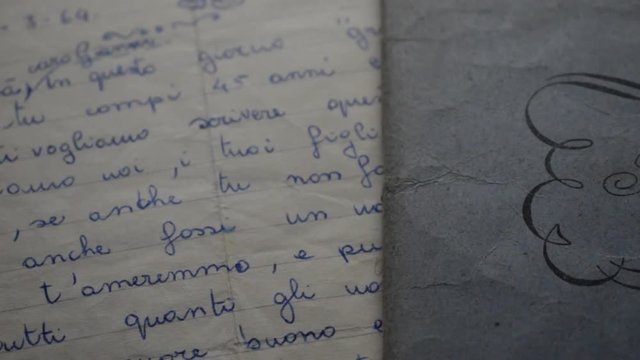 - 3 - 64.
in questo giorno "gr
tu compi 45 anni e
vogliamo scrivere que
noi, i tuoi figli
, se anche tu non fo
anche fossi un
t'ameremmo, e pu
tutti quanti gli uo
buono e